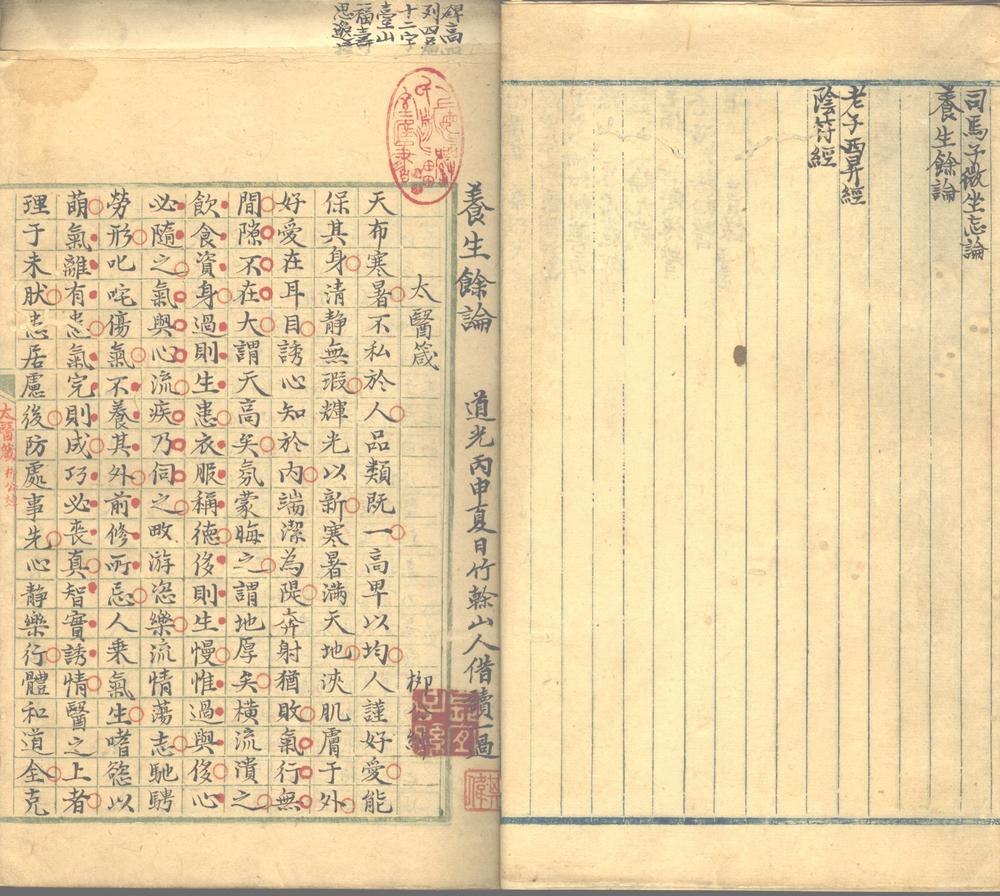 司馬子微坐忘論
養生餘論
老子西昇經
陰符經
碑高
列四
十二字
臺山
福壽
思邈
養生餘論
道光丙申夏日竹榦山人借讀一過
太醫箴
柳公綽
天布寒暑不私於人品類既一高卑以均人謹好愛能
保其身清靜無瑕輝光以新寒暑滿天地浹肌膚于外
好愛在耳目誘心知於内端潔為隄奔射猶敗氣行無
間隙不在大謂天高矣氛蒙晦之謂地厚矣橫流潰之
飲食資身過則生患衣服稱德侈則生慢惟過與侈心
必隨之氣與心流疾乃伺之畋游恣樂流情蕩志馳騁
勞形叱咤傷氣不養其外前修所忌人乗氣生嗜慾以
萌氣離有患氣完則成巧必喪真智實誘情醫之上者
理于未肰患居慮後防處事先心靜樂行體和道全克
太醫箴